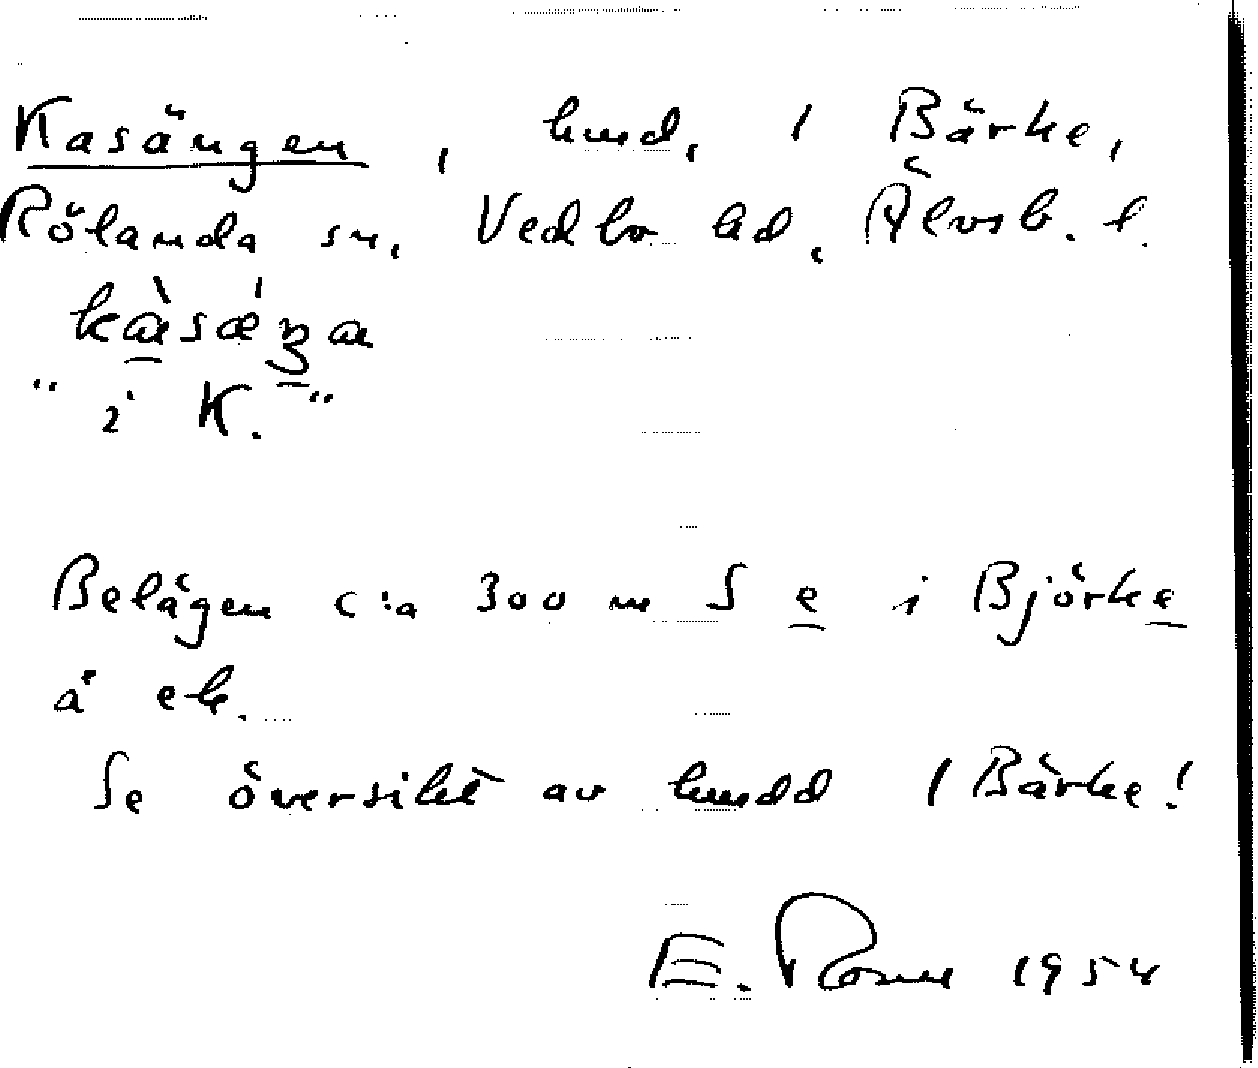 Kasängen, hmd, 1 Bärke,
Rölanda sn, Vedbo hd, Älvsb. l.
"i K."
Belägen c:a 300 m S e i Björke
å ek.
Se översikt av hmdd 1 Bärke!
E. 1954